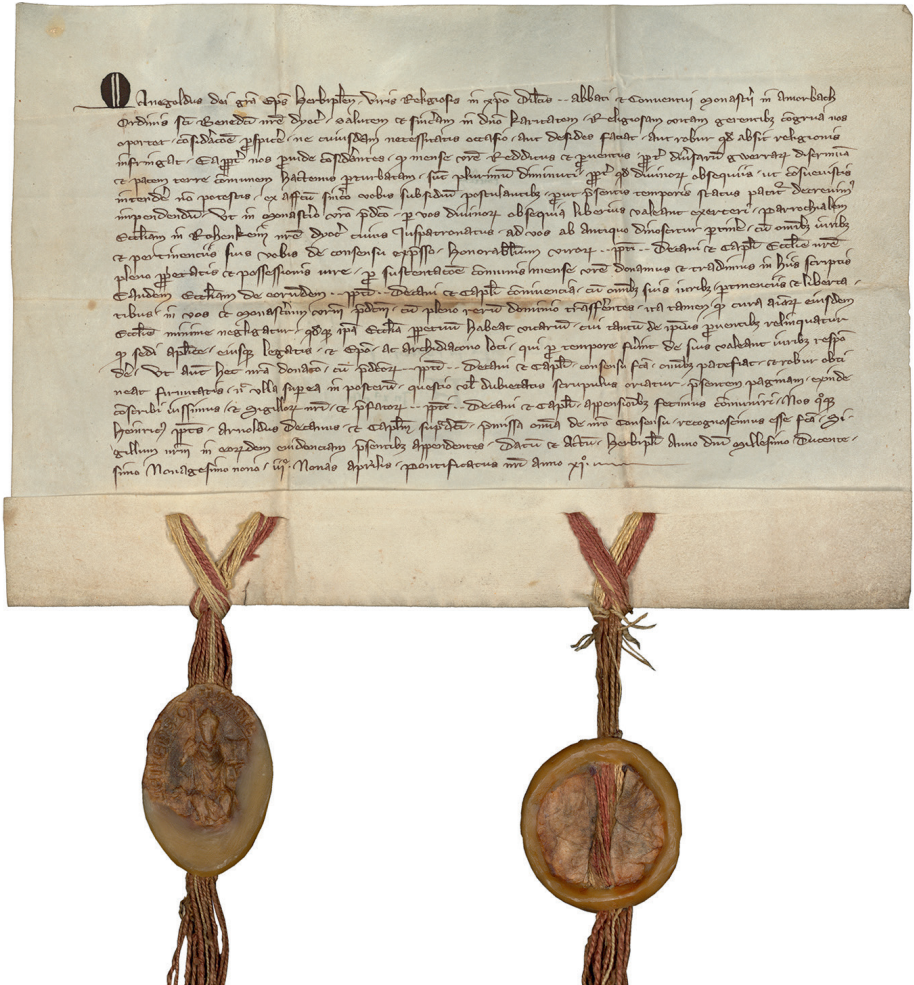 Manegoldus dei gr̄a Ep̄s Herbipleñ . Viris Religiosis in xp̄o Dil̄cis .. abbati et Conventui monast'ii in Amorbach
Ordinis sc̄i Benedc̄i nr̄e dyoc̄ . Salutem et sinc̄am in dn̄o karitatem . Religiosam vitam gerentibꝫ congrua nos
oportet considerac̄oe prospic̄e . ne cuiusdam necessitatis occasio . aut desides faciat . aut robur qd absit religionis
infringat . Eapropt' nos provide considerantes . qd mense vr̄e Redditus et proventus propt' diversarū gwerrar̄ discrimina
et pacem terre communem hactenus perturbatam . sunt plurimū diminuti . propt' qd divinor̄ obsequiis . ut consuevistis
intendere nō potestis . ex affc̄u sinc̄o vobis subsidiū . postulantibꝫ . prout presentis temporis status patit' decrevim9
impendendū . Ut in monast'io vr̄o p̄dc̄o . per vos divinor̄ obsequia liberius valeant exerceri . Parrochialem
Eccl̄iam in Rothenkem̄ nr̄e dyoc̄ cuius Iuspatronatus . ad vos ab antiquo dinoscitur ptine' . cū om̄ibꝫ iuribꝫ
et pertinenciis suis vobis de consensu exp̄sso . Honorabiliū viror̄ .. pp̄ti .. Decani et Capl̄i Eccl̄ie nr̄e
pleno proprietatis et possessionis iure . pro sustentac̄oe communis mense vr̄e donamus et tradimus in hiis scriptis
Eandem Eccl̄iam de eorundem .. pp̄ti .. Decani et Capl̄i conniuencia . cū om̄ibꝫ suis iuribꝫ ptinenciis et liberta-
tibus . in vos et monast'ium vr̄m p̄dc̄m . cū pleno rerū dominio transferentes . ita tamen . qd cura aīar̄ eiusdem
Eccl̄ie minime negligatur . qdqꝫ ipa Eccl̄ia perpetuū habeat vicariū . cui tantū de ipius proventibꝫ relinquatur
qd sedi apl̄ice . eiusqꝫ legatis . et Ep̄o . ac archidiacono loci . qui pro tempore fuīnt de suis valeant iuribꝫ respō
de' . Ut aut hec nr̄a donac̄o . cū p̄dc̄or̄ .. pp̄ti .. Decani et Capl̄i . consensu fc̄a . om̄ibꝫ patefiat . et robur obti
neat firmitatis . nec ulla sup' ea in posterū . questio vel dubietatis scrupulus oriatur . p̄sentem paginam . exinde
cōscribi iussimus . et Sigillor̄ nr̄i . et p̄fator̄ .. pp̄ti .. Decani et Capl̄i . appensionibꝫ fecimus cōmuniri . Nos qoqꝫ
Heinric9 pp̄ts . Arnoldus Decanus et Capl̄m sup̄dc̄i . p̄missa om̄ia de nr̄o Consensu . recognoscimus esse fc̄a . Si-
gillum nr̄m in eor̄dem evidenciam p̄sentibꝫ appendentes . Datū et Actū . Herbipl̄i Anno dn̄i Millesimo Ducente-
simo Nonagesimo nono . iij°. Nonas aprilis . Pontificatus nr̄i anno xj°.